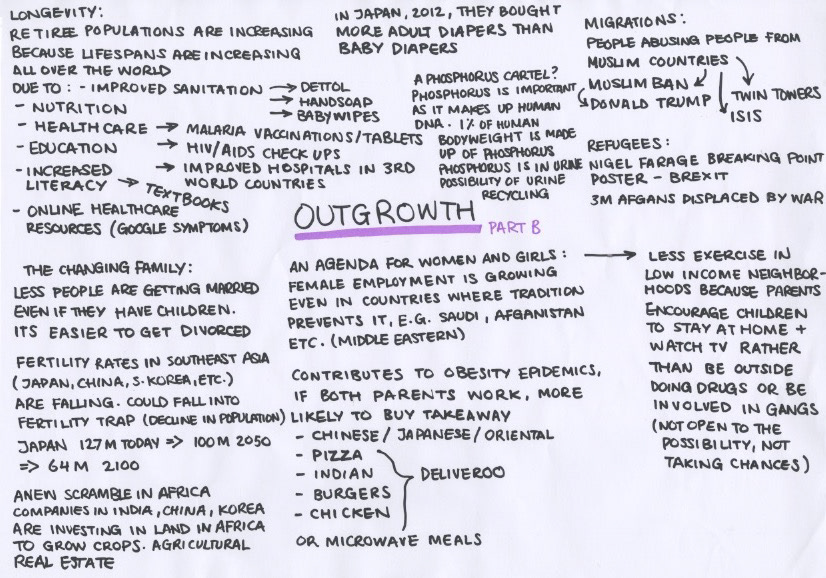 LONGEVITY:
RETIREE POPULATIONS ARE INCREASING
BECAUSE LIFESPANS ARE INCREASING
ALL OVER THE WORLD
DUE TO: - IMPROVED SANITATION → DETTOL
→ HANDSOAP
→ BABYWIPES
- NUTRITION
- HEALTHCARE → MALARIA VACCINATIONS/TABLETS
- EDUCATION → HIV/AIDS CHECK UPS
- INCREASED → IMPROVED HOSPITALS IN 3RD
LITERACY → TEXTBOOKS WORLD COUNTRIES
- ONLINE HEALTHCARE
RESOURCES (GOOGLE SYMPTOMS)
IN JAPAN, 2012, THEY BOUGHT
MORE ADULT DIAPERS THAN
BABY DIAPERS
A PHOSPHORUS CARTEL?
PHOSPHORUS IS IMPORTANT
AS IT MAKES UP HUMAN
DNA. 1% OF HUMAN
BODYWEIGHT IS MADE
UP OF PHOSPHORUS
PHOSPHORUS IS IN URINE
POSSIBILITY OF URINE
RECYCLING
MIGRATIONS:
PEOPLE ABUSING PEOPLE FROM
MUSLIM COUNTRIES
MUSLIM BAN
DONALD TRUMP
TWIN TOWERS
ISIS
REFUGEES:
NIGEL FARAGE BREAKING POINT
POSTER - BREXIT
3M AFGANS DISPLACED BY WAR
OUTGROWTH
PART B
THE CHANGING FAMILY:
LESS PEOPLE ARE GETTING MARRIED
EVEN IF THEY HAVE CHILDREN.
ITS EASIER TO GET DIVORCED
FERTILITY RATES IN SOUTHEAST ASIA
(JAPAN, CHINA, S. KOREA, ETC.)
ARE FALLING. COULD FALL INTO
FERTILITY TRAP (DECLINE IN POPULATION)
JAPAN 127M TODAY => 100M 2050
=> 64M 2100
A NEW SCRAMBLE IN AFRICA
COMPANIES IN INDIA, CHINA, KOREA
ARE INVESTING IN LAND IN AFRICA
TO GROW CROPS. AGRICULTURAL
REAL ESTATE
AN AGENDA FOR WOMEN AND GIRLS: →
FEMALE EMPLOYMENT IS GROWING
EVEN IN COUNTRIES WHERE TRADITION
PREVENTS IT, E.G. SAUDI, AFGANISTAN
ETC. (MIDDLE EASTERN)
CONTRIBUTES TO OBESITY EPIDEMICS,
IF BOTH PARENTS WORK, MORE
LIKELY TO BUY TAKEAWAY
- CHINESE/JAPANESE/ORIENTAL
- PIZZA
- INDIAN
- BURGERS
- CHICKEN
DELIVEROO
OR MICROWAVE MEALS
LESS EXERCISE IN
LOW INCOME NEIGHBOR-
HOODS BECAUSE PARENTS
ENCOURAGE CHILDREN
TO STAY AT HOME +
WATCH TV RATHER
THAN BE OUTSIDE
DOING DRUGS OR BE
INVOLVED IN GANGS
(NOT OPEN TO THE
POSSIBILITY, NOT
TAKING CHANCES)